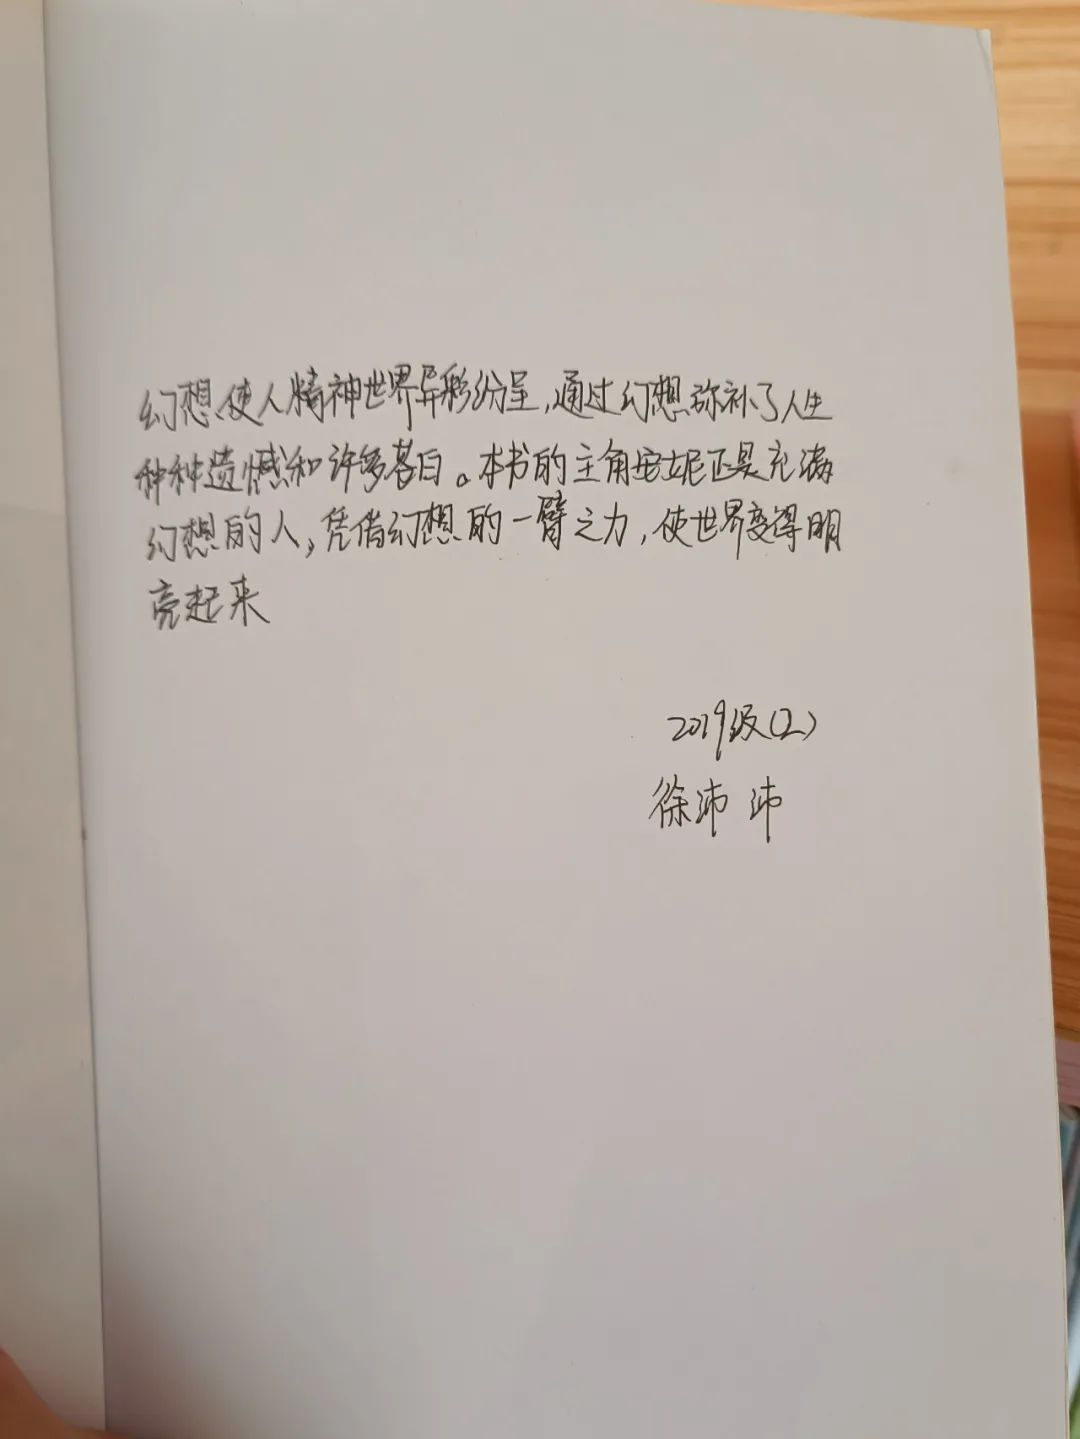 幻想使人精神世界异彩纷呈,通过幻想弥补了人生
种种遗憾和许多苍白。本书的主角安妮正是充满
幻想的人,凭借幻想的一臂之力,使世界变得明
亮起来
2019级(2)
徐沛 沛